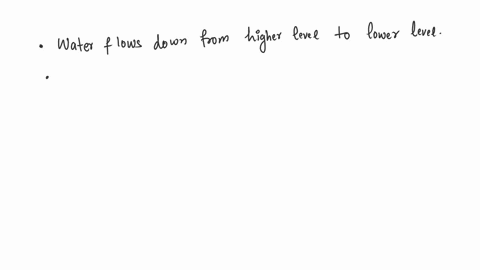 • Water flows down from higher level to lower level.
•